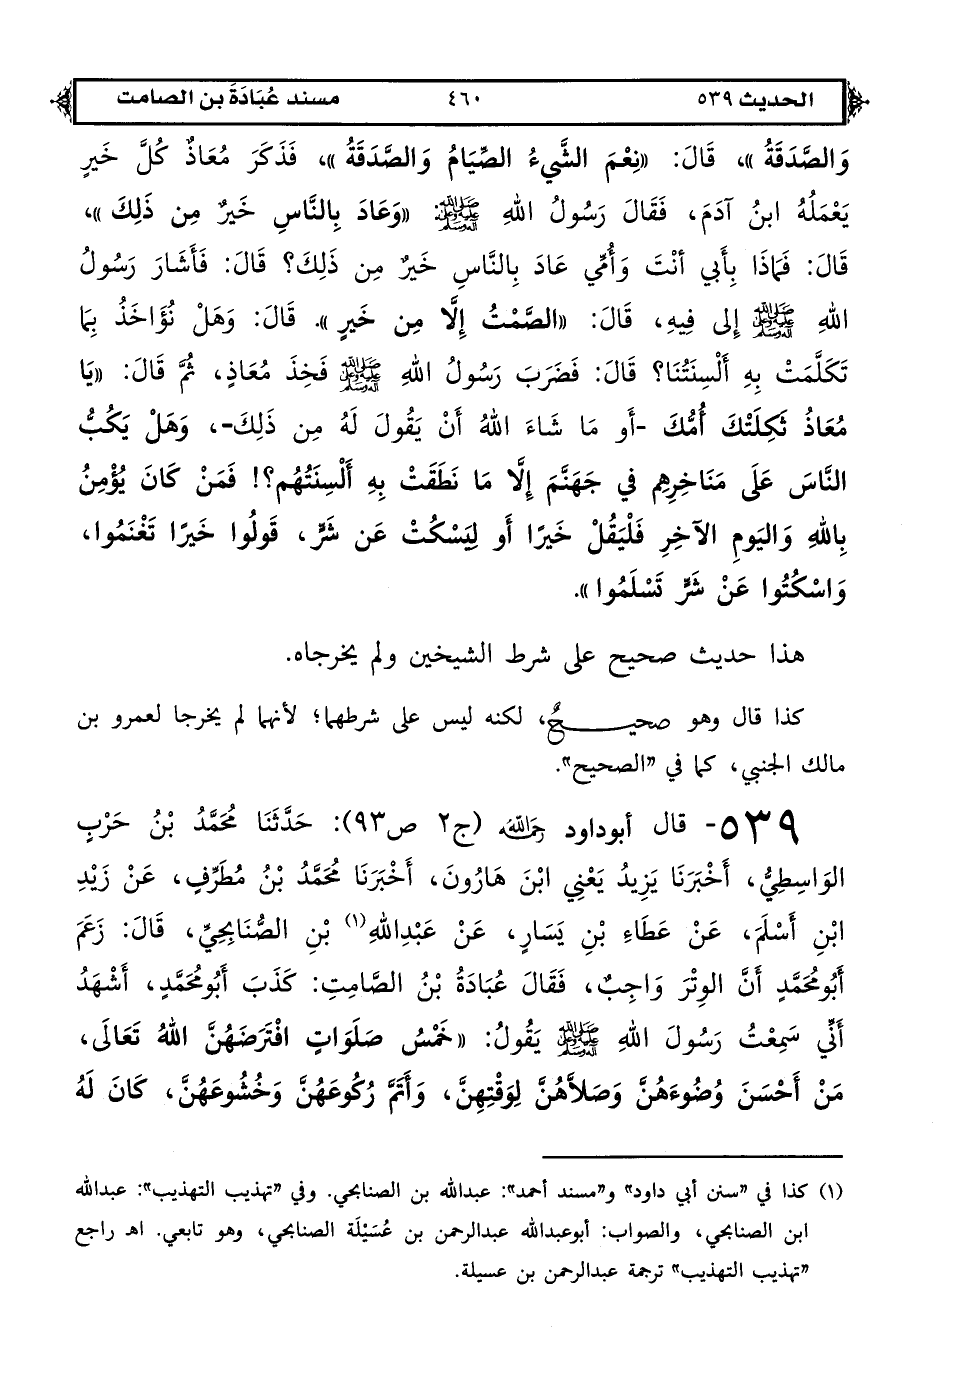 الحديث ٥٣٩ ٤٦٠ مسند عُبَادَةَ بن الصامت
وَالصَّدَقَةُ»، قَالَ: «نِعْمَ الشَّيءُ الصِّيَامُ وَالصَّدَقَةُ»، فَذَكَرَ مُعَاذٌ كُلَّ خَيرٍ
يَعْمَلُهُ ابنُ آدَمَ، فَقَالَ رَسُولُ اللهِ ﷺ: «وَعَادَ بِالنَّاسِ خَيرٌ مِن ذَلِكَ»،
قَالَ: فَمَاذَا بِأَبي أنْتَ وَأُمِّي عَادَ بِالنَّاسِ خَيرٌ مِن ذَلِكَ؟ قَالَ: فَأَشَارَ رَسُولُ
اللهِ ﷺ إِلى فِيهِ، قَالَ: «الصَّمْتُ إِلَّا مِن خَيرٍ». قَالَ: وَهَلْ نُؤَاخَذُ بِمَا
تَكَلَّمَتْ بِهِ أَلْسِنَتُنَا؟ قَالَ: فَضَرَبَ رَسُولُ اللهِ ﷺ فَخِذَ مُعَاذٍ، ثُمَّ قَالَ: «يَا
مُعَاذُ ثَكِلَتْكَ أُمُّكَ -أَو مَا شَاءَ اللهُ أَنْ يَقُولَ لَهُ مِن ذَلِكَ-، وَهَلْ يَكُبُّ
النَّاسَ عَلَى مَنَاخِرِهِم في جَهَنَّمَ إِلَّا مَا نَطَقَتْ بِهِ أَلْسِنَتُهُم؟! فَمَنْ كَانَ يُؤْمِنُ
بِاللهِ وَاليَومِ الآخِرِ فَلْيَقُلْ خَيرًا أَو لِيَسْكُتْ عَن شَرٍّ، قَولُوا خَيرًا تَغْنَمُوا،
وَاسْكُتُوا عَنْ شَرٍّ تَسْلَمُوا».
هذا حديث صحيح على شرط الشيخين ولم يخرجاه.
كذا قال وهو صحيـــــحٌ، لكنه ليس على شرطهما؛ لأنهما لم يخرجا لعمرو بن
مالك الجنبي، كما في "الصحيح".
٥٣٩- قال أبوداود رحمه الله (ج٢ ص٩٣): حَدَّثَنَا مُحَمَّدُ بْنُ حَرْبٍ
الوَاسِطِيُّ، أَخْبَرَنَا يَزِيدُ يَعْنِي ابْنَ هَارُونَ، أَخْبَرَنَا مُحَمَّدُ بْنُ مُطَرِّفٍ، عَنْ زَيْدِ
ابْنِ أَسْلَمَ، عَنْ عَطَاءِ بْنِ يَسَارٍ، عَنْ عَبْدِاللهِ(١) بْنِ الصُّنَابِحِيِّ، قَالَ: زَعَمَ
أَبُومُحَمَّدٍ أَنَّ الوِتْرَ وَاجِبٌ، فَقَالَ عُبَادَةُ بْنُ الصَّامِتِ: كَذَبَ أَبُومُحَمَّدٍ، أَشْهَدُ
أَنِّي سَمِعْتُ رَسُولَ اللهِ ﷺ يَقُولُ: «خَمْسُ صَلَوَاتٍ افْتَرَضَهُنَّ اللهُ تَعَالَى،
مَنْ أَحْسَنَ وُضُوءَهُنَّ وَصَلاَّهُنَّ لِوَقْتِهِنَّ، وَأَتَمَّ رُكُوعَهُنَّ وَخُشُوعَهُنَّ، كَانَ لَهُ
(١) كذا في "سنن أبي داود" و"مسند أحمد": عبدالله بن الصنابحي. وفي "تهذيب التهذيب": عبدالله
ابن الصنابحي، والصواب: أبوعبدالله عبدالرحمن بن عُسَيْلَة الصنابحي، وهو تابعي. اهـ راجع
"تهذيب التهذيب" ترجمة عبدالرحمن بن عسيلة.